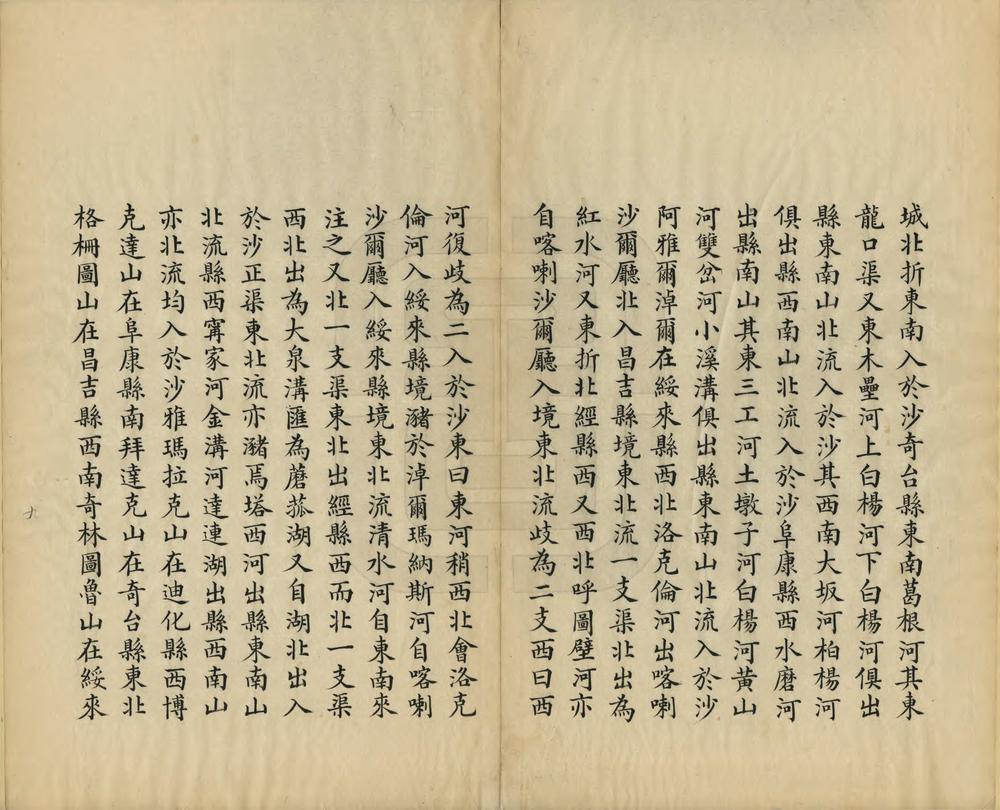 城北折東南入於沙奇台縣東南葛根河其東
龍口渠又東木壘河上白楊河下白楊河俱出
縣東南山北流入於沙其西南大坂河柏楊河
俱出縣西南山北流入於沙阜康縣西水磨河
出縣南山其東三工河土墩子河白楊河黃山
河雙岔河小溪溝俱出縣東南山北流入於沙
阿雅爾淖爾在綏來縣西北洛克倫河出喀喇
沙爾廳北入昌吉縣境東北流一支渠北出為
紅水河又東折北經縣西又西北呼圖壁河亦
自喀喇沙爾廳入境東北流歧為二支西曰西
河復歧為二入於沙東曰東河稍西北會洛克
倫河入綏來縣境瀦於淖爾瑪納斯河自喀喇
沙爾廳入綏來縣境東北流清水河自東南來
注之又北一支渠東北出經縣西而北一支渠
西北出為大泉溝匯為蘑菰湖又自湖北出入
於沙正渠東北流亦瀦焉塔西河出縣東南山
北流縣西甯家河金溝河達連湖出縣西南山
亦北流均入於沙雅瑪拉克山在迪化縣西博
克達山在阜康縣南拜達克山在奇台縣東北
格柵圖山在昌吉縣西南奇林圖魯山在綏來